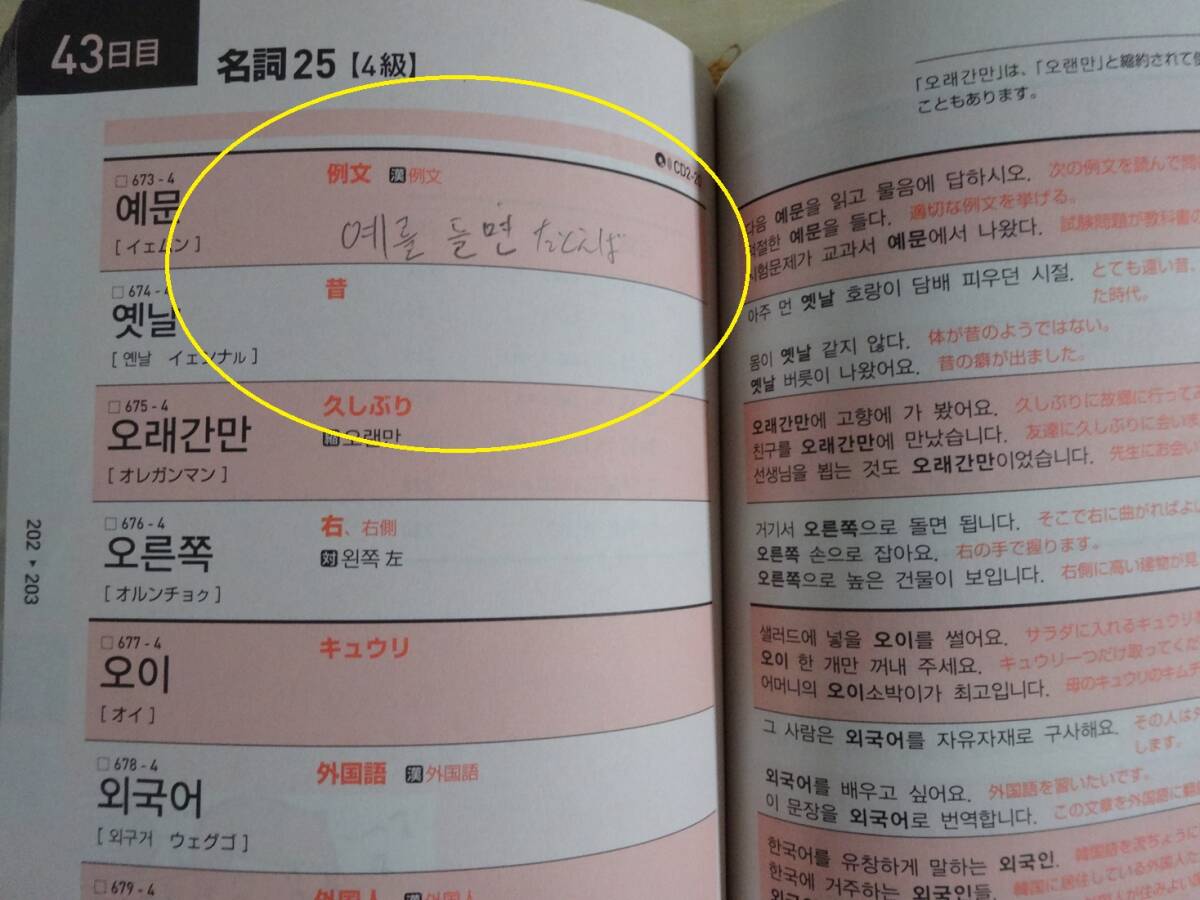 43日目
名詞25【4級】
CD2-20
□673-4
예문
[イェムン]
例文 漢例文
예를 들면 たとえば
□674-4
옛날
[옌날 イェンナル]
昔
□675-4
오래간만
[オレガンマン]
久しぶり
縮오랜만
□676-4
오른쪽
[オルンチョク]
右、右側
対왼쪽 左
□677-4
오이
[オイ]
キュウリ
□678-4
외국어
[외구거 ウェグゴ]
外国語 漢外国語
□679-4
外国人 漢外国人
202▶203
「오래간만」は、「오랜만」と縮約されて使
こともあります。
다음 예문을 읽고 물음에 답하시오. 次の例文を読んで問
적절한 예문을 들다. 適切な例文を挙げる。
시험문제가 교과서 예문에서 나왔다. 試験問題が教科書の
아주 먼 옛날 호랑이 담배 피우던 시절. とても遠い昔、
た時代。
몸이 옛날 같지 않다. 体が昔のようではない。
옛날 버릇이 나왔어요. 昔の癖が出ました。
오래간만에 고향에 가 봤어요. 久しぶりに故郷に行ってみ
친구를 오래간만에 만났습니다. 友達に久しぶりに会いま
선생님을 뵙는 것도 오래간만이었습니다. 先生にお会い
거기서 오른쪽으로 돌면 됩니다. そこで右に曲がればよい
오른쪽 손으로 잡아요. 右の手で握ります。
오른쪽으로 높은 건물이 보입니다. 右側に高い建物が見
샐러드에 넣을 오이를 썰어요. サラダに入れるキュウリを
오이 한 개만 꺼내 주세요. キュウリ一つだけ取ってくだ
어머니의 오이소박이가 최고입니다. 母のキュウリのキムチ
그 사람은 외국어를 자유자재로 구사해요. その人は外
します。
외국어를 배우고 싶어요. 外国語を習いたいです。
이 문장을 외국어로 번역합니다. この文章を外国語に翻
한국어를 유창하게 말하는 외국인. 韓国語を流ちょうに
한국에 거주하는 외국인들. 韓国に居住している外国人た